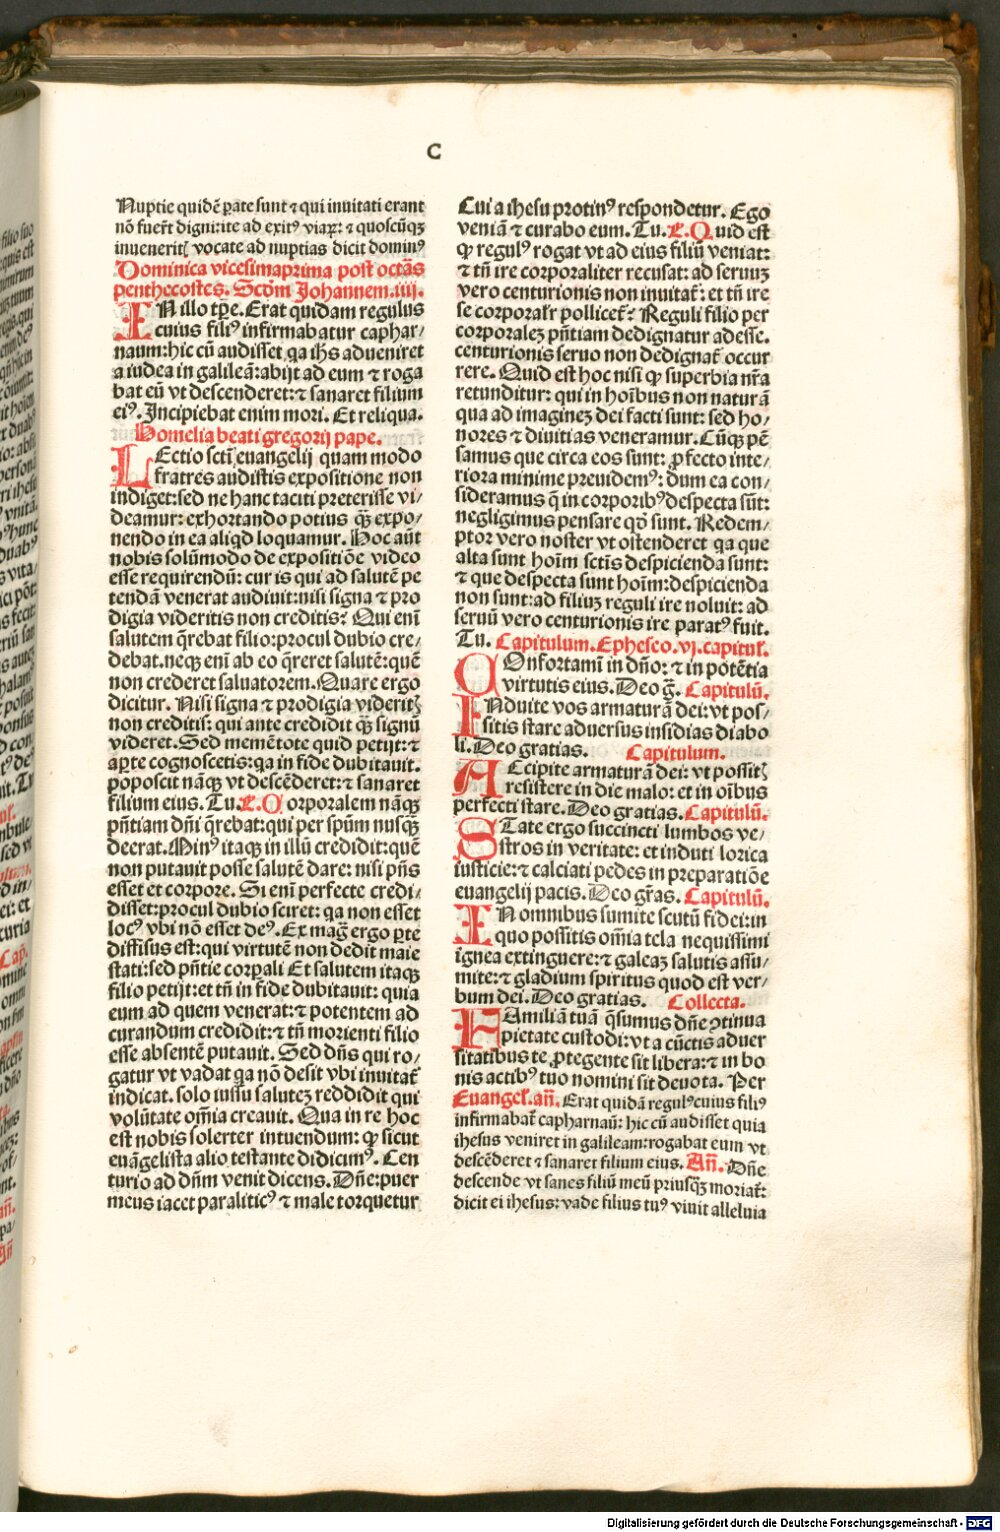 C
Nuptie quidē ꝑate sunt ⁊ qui inuitati erant
nō fuer̄t digni: ite ad exitꝰ viaꝝ: ⁊ quoscūqꝫ
inueneritꝭ vocate ad nuptias dicit dominꝰ
Dominica vicesimaprima post octās
penthecostes. Scd̄m Johannem. iiij.
IN illo tp̄e. Erat quidam regulus
cuius filiꝰ infirmabatur caphar/
naum: hic cū audisset qa ih̄s adueniret
a iudea in galileā: abijt ad eum ⁊ roga
bat eū vt descenderet: ⁊ sanaret filium
eiꝰ. Incipiebat enim mori. Et reliqua.
Homelia beati gregorij pape.
LEctio sctī euangelij quam modo
fratres audistis expositione non
indiget: sed ne hanc taciti preterisse vi/
deamur: exhortando potius qꝫ̄ expo/
nendo in ea aliqd loquamur. Hoc aūt
nobis solūmodo de expositiōe video
esse requirendū: cur is qui ad salutē pe
tendā venerat audiuit: nisi signa ⁊ pro
digia videritis non creditis? Qui enī
salutem q̄rebat filio: procul dubio cre/
debat. neqꝫ enī ab eo q̄reret salutē: quē
non crederet saluatorem. Quare ergo
dicitur. Nisi signa ⁊ prodigia videritꝭ
non creditis: qui ante credidit qꝫ̄ signū
videret. Sed memētote quid petijt: ⁊
aꝑte cognoscetis: qa in fide dubitauit.
poposcit nāqꝫ vt descēderet: ⁊ sanaret
filium eius. Tu. R. Corporalem nāqꝫ
pn̄tiam dn̄i q̄rebat: qui per spm̄ nusqꝫ̄
deerat. Minꝰ itaqꝫ in illū credidit: quē
non putauit posse salutē dare: nisi pn̄s
esset et corpore. Si enī perfecte credi/
disset: procul dubio sciret: qa non esset
locꝰ vbi nō esset deꝰ. Ex maḡ ergo ꝑte
diffisus est: qui virtutē non dedit maie
stati: sed pn̄tie corꝑali Et salutem itaqꝫ
filio petijt: et tn̄ in fide dubitauit: quia
eum ad quem venerat: ⁊ potentem ad
curandum credidit: ⁊ tn̄ morienti filio
esse absentē putauit. Sed dn̄s qui ro/
gatur vt vadat qa nō desit vbi inuitat̄
indicat. solo iussu saluteꝫ reddidit qui
volūtate om̄ia creauit. Qua in re hoc
est nobis solerter intuendum: ꝙ sicut
euāgelista alio testante didicimꝰ. Cen
turio ad dn̄m venit dicens. Dn̄e: puer
meus iacet paraliticꝰ ⁊ male torquetur
Cui a ihesu protinꝰ respondetur. Ego
veniā ⁊ curabo eum. Tu. R. Quid est
ꝙ regulꝰ rogat vt ad eius filiū veniat:
⁊ tn̄ ire corporaliter recusat: ad seruuꝫ
vero centurionis non inuitat̄: et tn̄ ire
se corporalr̄ pollicet̄? Reguli filio per
corporaleꝫ pn̄tiam dedignatur adesse.
centurionis seruo non dedignat̄ occur
rere. Quid est hoc nisi ꝙ superbia nr̄a
retunditur: qui in hoībus non naturā
qua ad imagineꝫ dei facti sunt: sed ho/
nores ⁊ diuitias veneramur. Cūqꝫ pē
samus que circa eos sunt: ꝓfecto inte/
riora minime preuidemꝰ: dum ea con/
sideramus q̄ in corporibꝰ despecta sūt:
negligimus pensare qō sunt. Redem/
ptor vero noster vt ostenderet qa que
alta sunt hoīm sctīs despicienda sunt:
⁊ que despecta sunt hoīm: despicienda
non sunt: ad filiuꝫ reguli ire noluit: ad
seruū vero centurionis ire paratꝰ fuit.
Tu. Capitulum. Epheseo. vj. capitul̄.
COnfortamī in dn̄o: ⁊ in potētia
virtutis eius. Deo gr̄. Capitulū.
INduite vos armaturā dei: vt pos/
sitis stare aduersus insidias diabo
li. Deo gratias. Capitulum.
ACcipite armaturā dei: vt possitꝭ
resistere in die malo: et in oībus
perfecti stare. Deo gratias. Capitulū.
STate ergo succincti lumbos ve/
stros in veritate: et induti lorica
iusticie: ⁊ calciati pedes in preparatiōe
euangelij pacis. Deo gr̄as. Capitulū.
IN omnibus sumite scutū fidei: in
quo possitis om̄ia tela nequissimi
ignea extinguere: ⁊ galeaꝫ salutis assu/
mite: ⁊ gladium spiritus quod est ver/
bum dei. Deo gratias. Collecta.
FAmiliā tuā q̄sumus dn̄e ꝯtinua
pietate custodi: vt a cūctis aduer
sitatibus te ꝓtegente sit libera: ⁊ in bo
nis actibꝰ tuo nomini sit deuota. Per
Euangel̄. an̄. Erat quidā regulꝰ cuius filiꝰ
infirmabat̄ capharnaū: hic cū audisset quia
ihesus veniret in galileam: rogabat eum vt
descēderet ⁊ sanaret filium eius. An̄. Dn̄e
descende vt sanes filiū meū priusqꝫ̄ moriat̄:
dicit ei ihesus: vade filius tuꝰ viuit alleluia
Digitalisierung gefördert durch die Deutsche Forschungsgemeinschaft - DFG